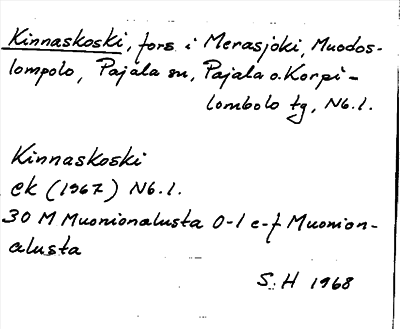 Kinnaskoski, fors i Merasjoki, Muodos-
lompolo, Pajala sn, Pajala o. Korpi-
lombolo tg, Nb. l.
Kinnaskoski
ek (1967) Nb. l.
30 M Muonionalusta 0-1 e-f Muonion-
alusta
S. H 1968